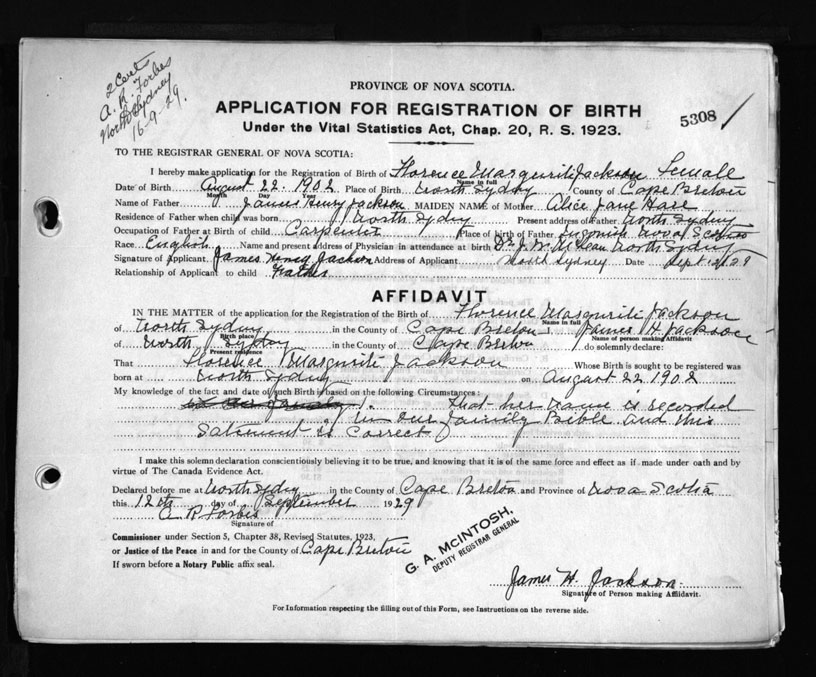 2 Certs
A. R. Forbes
North Sydney
16-9-29.
PROVINCE OF NOVA SCOTIA.
APPLICATION FOR REGISTRATION OF BIRTH
5308
Under the Vital Statistics Act, Chap. 20, R. S. 1923.
TO THE REGISTRAR GENERAL OF NOVA SCOTIA:
I hereby make application for the Registration of Birth of Florence Margurite Jackson Female
Name in full
Date of Birth August 22. 1902 Place of Birth North Sydney County of Cape Breton
Month Day Year
Name of Father James Henry Jackson MAIDEN NAME of Mother Alice Jane Hare
Residence of Father when child was born North Sydney Present address of Father North Sydney
Occupation of Father at Birth of child Carpenter place of birth of Father Nova Scotia
Race English Name and present address of Physician in attendance at birth Dr. J. W. McLean North Sydney
Signature of Applicant James Henry Jackson Address of Applicant North Sydney Date Sept. 12/29
Relationship of Applicant to child Father
AFFIDAVIT
IN THE MATTER of the application for the Registration of the Birth of Florence Margurite Jackson
Name in full
of North Sydney in the County of Cape Breton I James H Jackson
Birth place Name of person making Affidavit
of North Sydney in the County of Cape Breton do solemnly declare:
Present residence
That Florence Margurite Jackson Whose Birth is sought to be registered was
born at North Sydney on August 22 1902
My knowledge of the fact and date of such Birth is based on the following Circumstances:
That her name is recorded
in our family Bible and this
Satement is Correct
I make this solemn declaration conscientiously believing it to be true, and knowing that it is of the same force and effect as if made under oath and by
virtue of The Canada Evidence Act.
Declared before me at North Sydney in the County of Cape Breton and Province of Nova Scotia
this 12th day of September 1929
A R Forbes
Signature of
Commissioner under Section 5, Chapter 38, Revised Statutes, 1923,
or Justice of the Peace in and for the County of Cape Breton
If sworn before a Notary Public affix seal.
G. A. McINTOSH,
DEPUTY REGISTRAR GENERAL
James H. Jackson
Signature of Person making Affidavit.
For Information respecting the filling out of this Form, see Instructions on the reverse side.